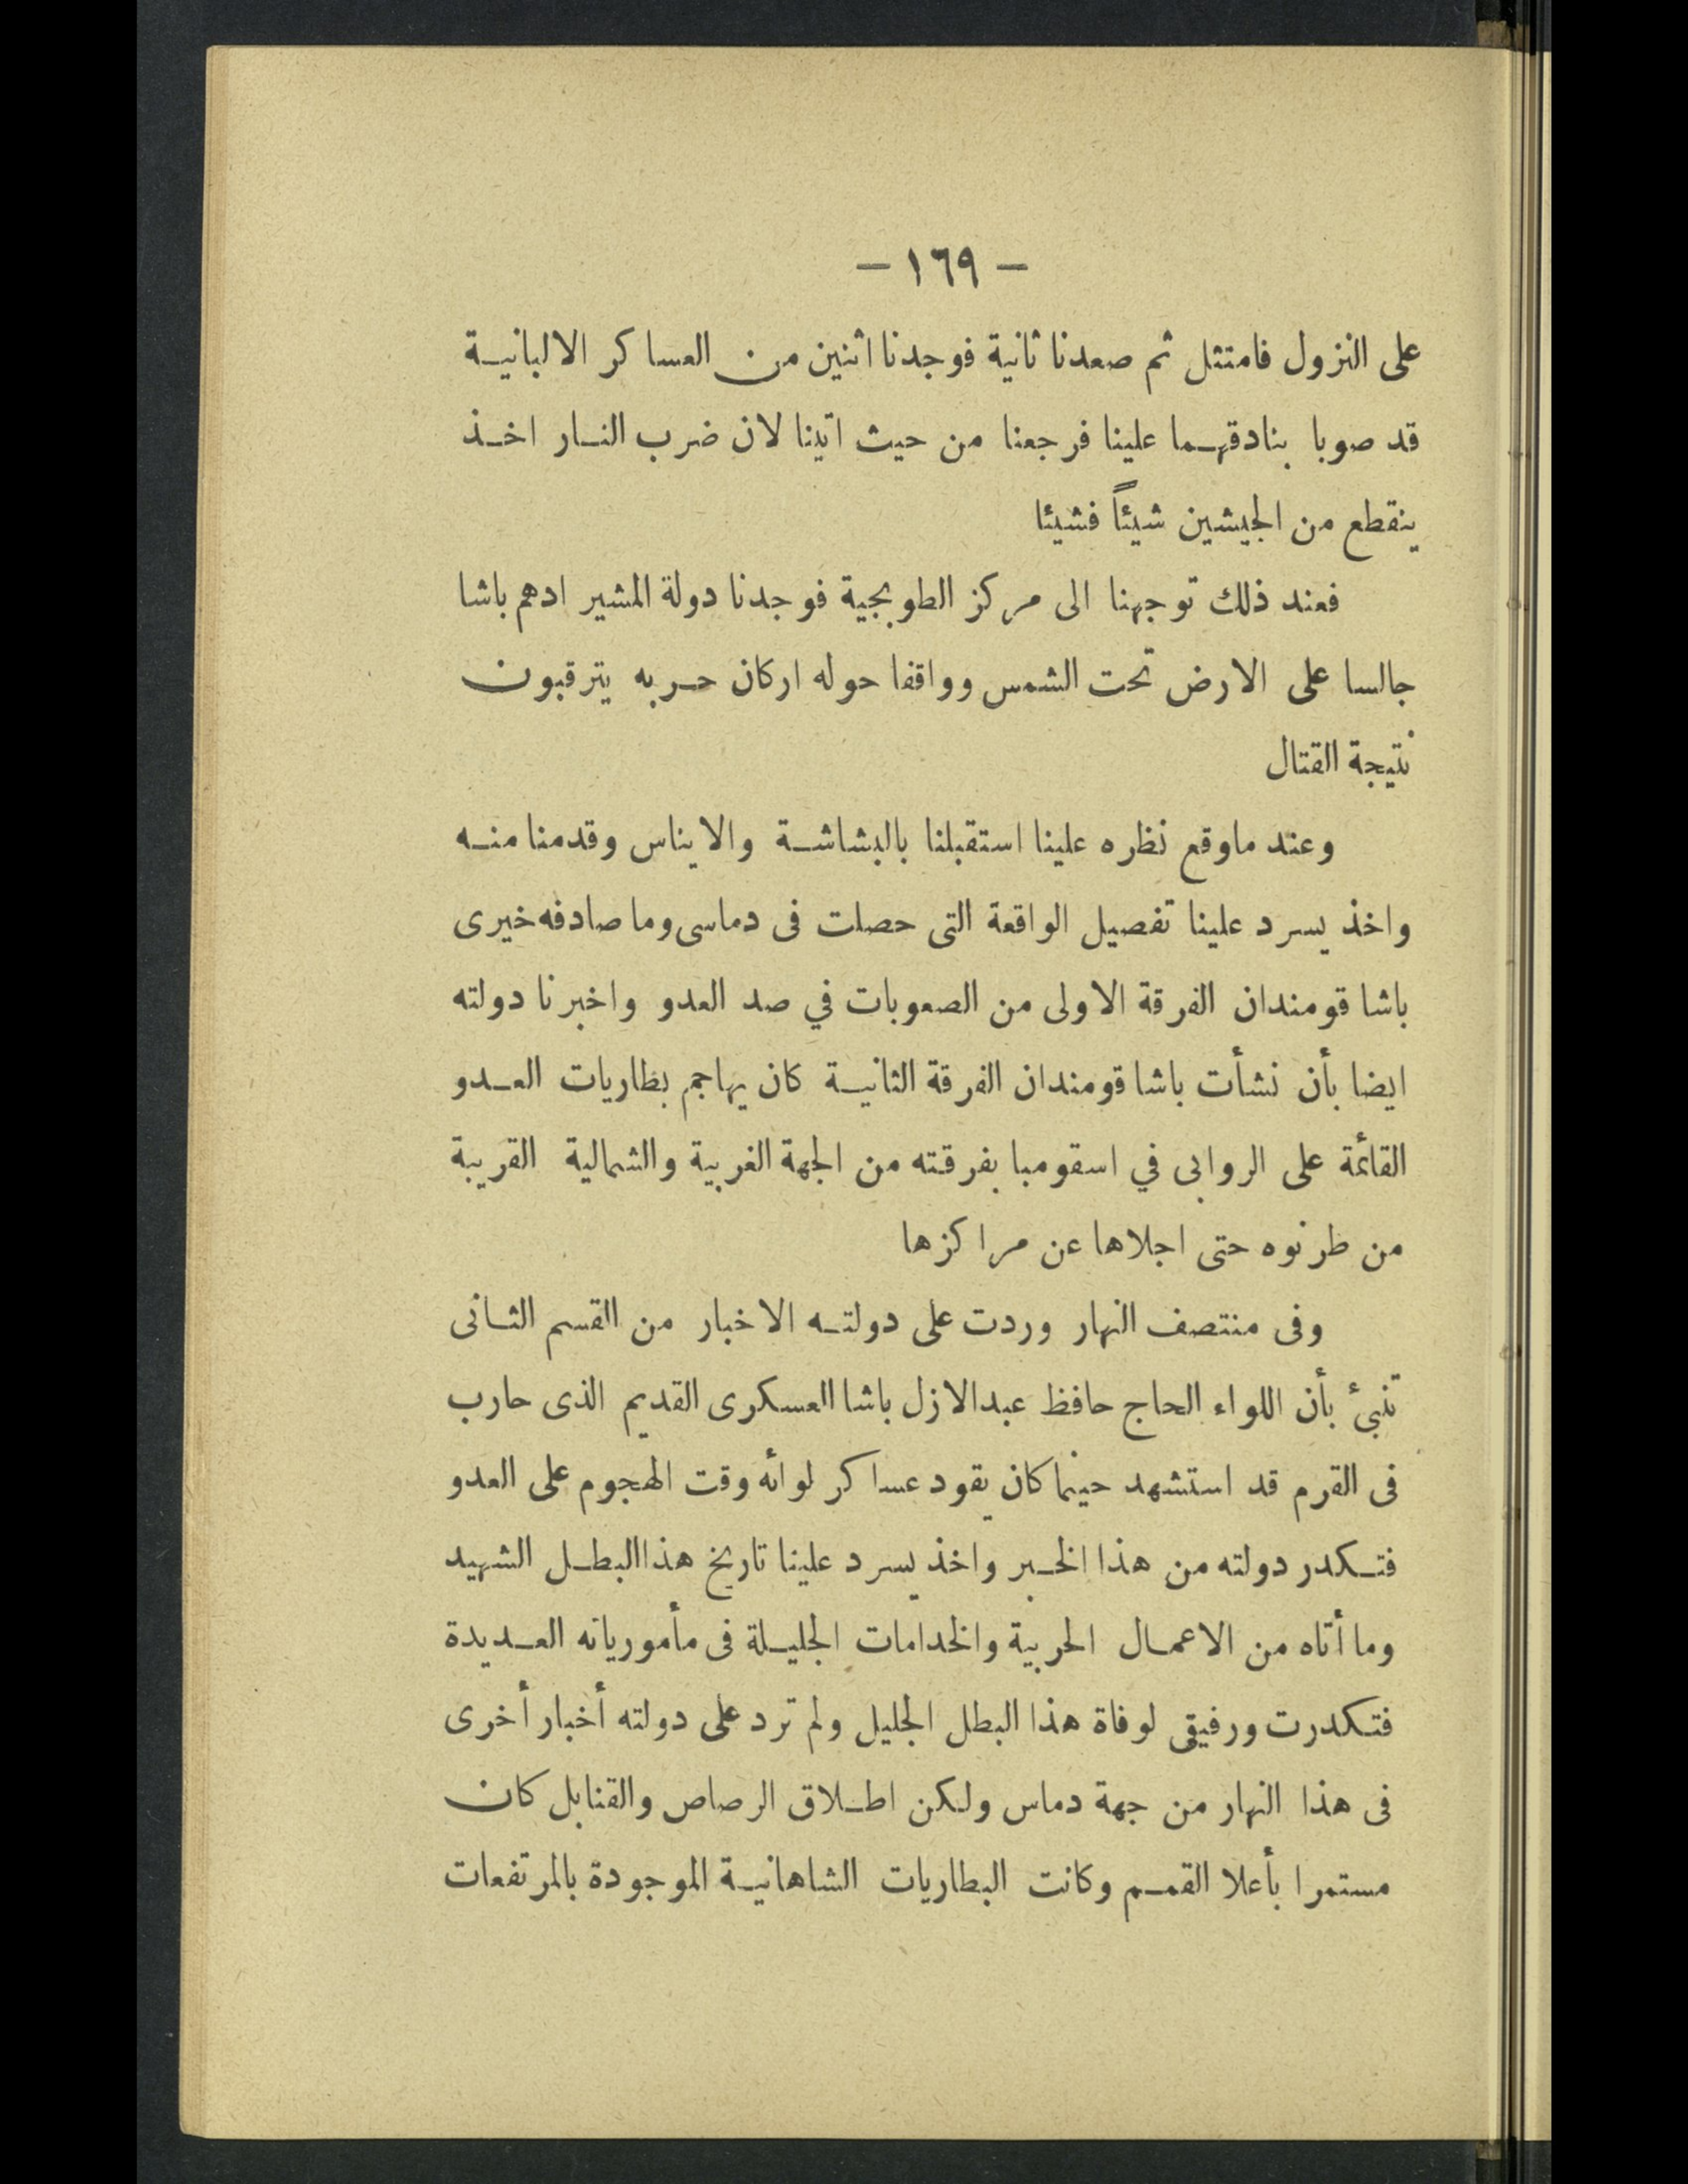 — ١٦٩ —
على النزول فامتثل ثم صعدنا ثانية فوجدنا اثنين من العساكر الالبانية
قد صوبا بنادقهما علينا فرجعنا من حيث اتينا لان ضرب النار اخذ
ينقطع من الجيشين شيئاً فشيئا
فعند ذلك توجهنا الى مركز الطوبجية فوجدنا دولة المشير ادهم باشا
جالسا على الارض تحت الشمس وواقفا حوله اركان حربه يترقبون
نتيجة القتال
وعند ماوقع نظره علينا استقبلنا بالبشاشة والايناس وقدمنا منه
واخذ يسرد علينا تفصيل الواقعة التى حصلت فى دماسى وما صادفه خيرى
باشا قومندان الفرقة الاولى من الصعوبات في صد العدو واخبرنا دولته
ايضا بأن نشأت باشا قومندان الفرقة الثانية كان يهاجم بطاريات العدو
القائمة على الروابى في اسقومبا بفرقته من الجهة الغربية والشمالية القريبة
من طرنوه حتى اجلاها عن مراكزها
وفى منتصف النهار وردت على دولته الاخبار من القسم الثانى
تنبئ بأن اللواء الحاج حافظ عبدالازل باشا العسكرى القديم الذى حارب
فى القرم قد استشهد حينما كان يقود عساكر لوائه وقت الهجوم على العدو
فتكدر دولته من هذا الخبر واخذ يسرد علينا تاريخ هذا البطل الشهيد
وما أتاه من الاعمال الحربية والخدامات الجليلة فى مأمورياته العديدة
فتكدرت ورفيقى لوفاة هذا البطل الجليل ولم ترد على دولته أخبار أخرى
فى هذا النهار من جهة دماس ولكن اطلاق الرصاص والقنابل كان
مستمرا بأعلا القمم وكانت البطاريات الشاهانية الموجودة بالمرتفعات